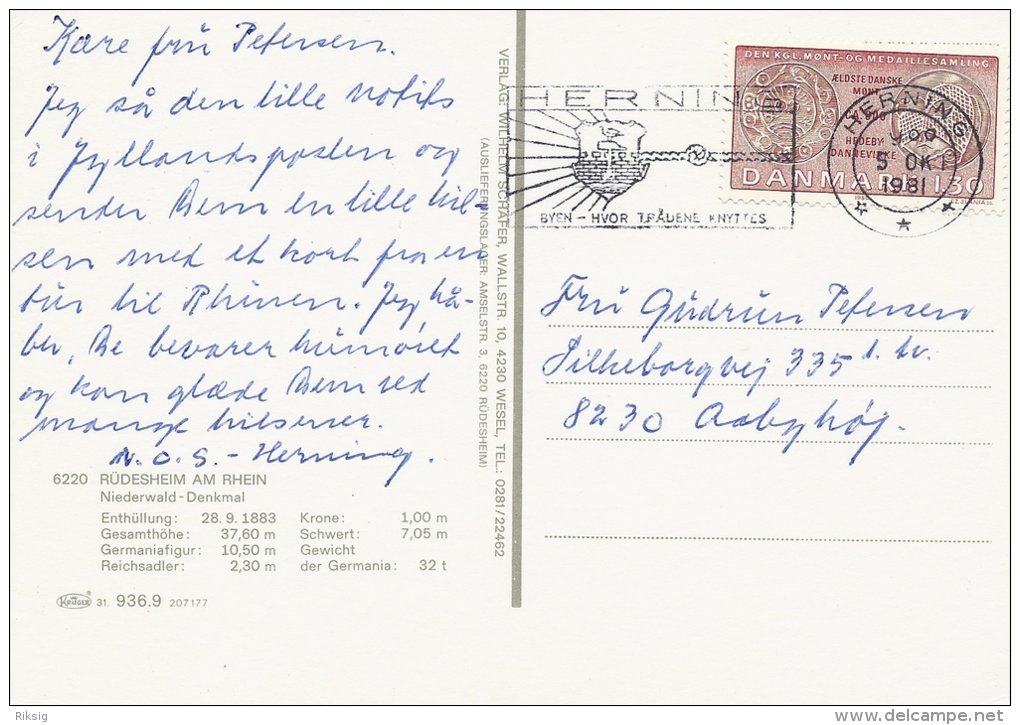 Kære fru Petersen.
Jeg så den lille notits
i Jyllandsposten og
sender Dem en lille hil-
sen med et kort fra en
tur til Rhinen. Jeg hå-
ber, De bevarer humøret
og kan glæde Dem ved
mange hilsener.
N.O.S. - Herning.
6220 RÜDESHEIM AM RHEIN
Niederwald-Denkmal
Enthüllung: 28. 9. 1883 Krone: 1,00 m
Gesamthöhe: 37,60 m Schwert: 7,05 m
Germaniafigur: 10,50 m Gewicht
Reichsadler: 2,30 m der Germania: 32 t
KRÜGER ® 31. 936.9 207177
VERLAG: WILHELM SCHÄFER, WALLSTR. 10, 4230 WESEL, TEL.: 0281/22462
(AUSLIEFERUNGSLAGER: AMSELSTR. 3, 6220 RÜDESHEIM)
HERNING
BYEN - HVOR TRÅDENE KNYTTES
DEN KGL. MØNT- OG MEDAILLESAMLING
ÆLDSTE DANSKE
MØNT
HEDEBY
DANNEVIRKE
DANMARK 130
HERNING
5 OKT
1981
Fru Gudrun Petersen
Silkeborgvej 335 1. tv.
8230 Aabyhøj.
Riksig
delcampe.net